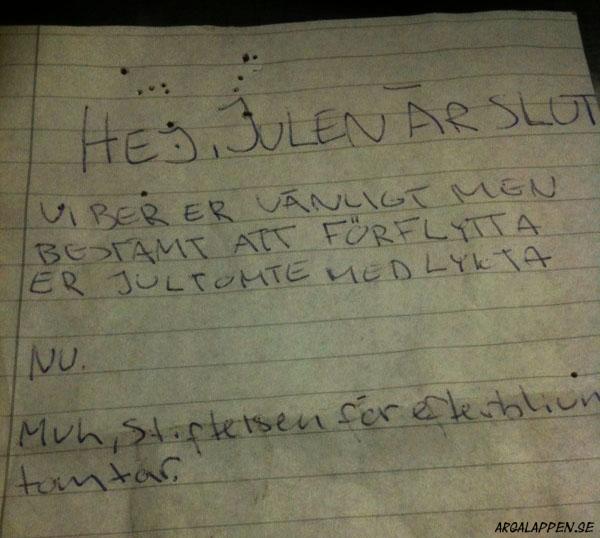 HEJ, JULEN ÄR SLUT
VI BER ER VÄNLIGT MEN
BESTÄMT ATT FÖRFLYTTA
ER JULTOMTE MED LYKTA
NU.
Mvh, Stiftelsen för efterblivn
tomtar.
ARGALAPPEN.SE